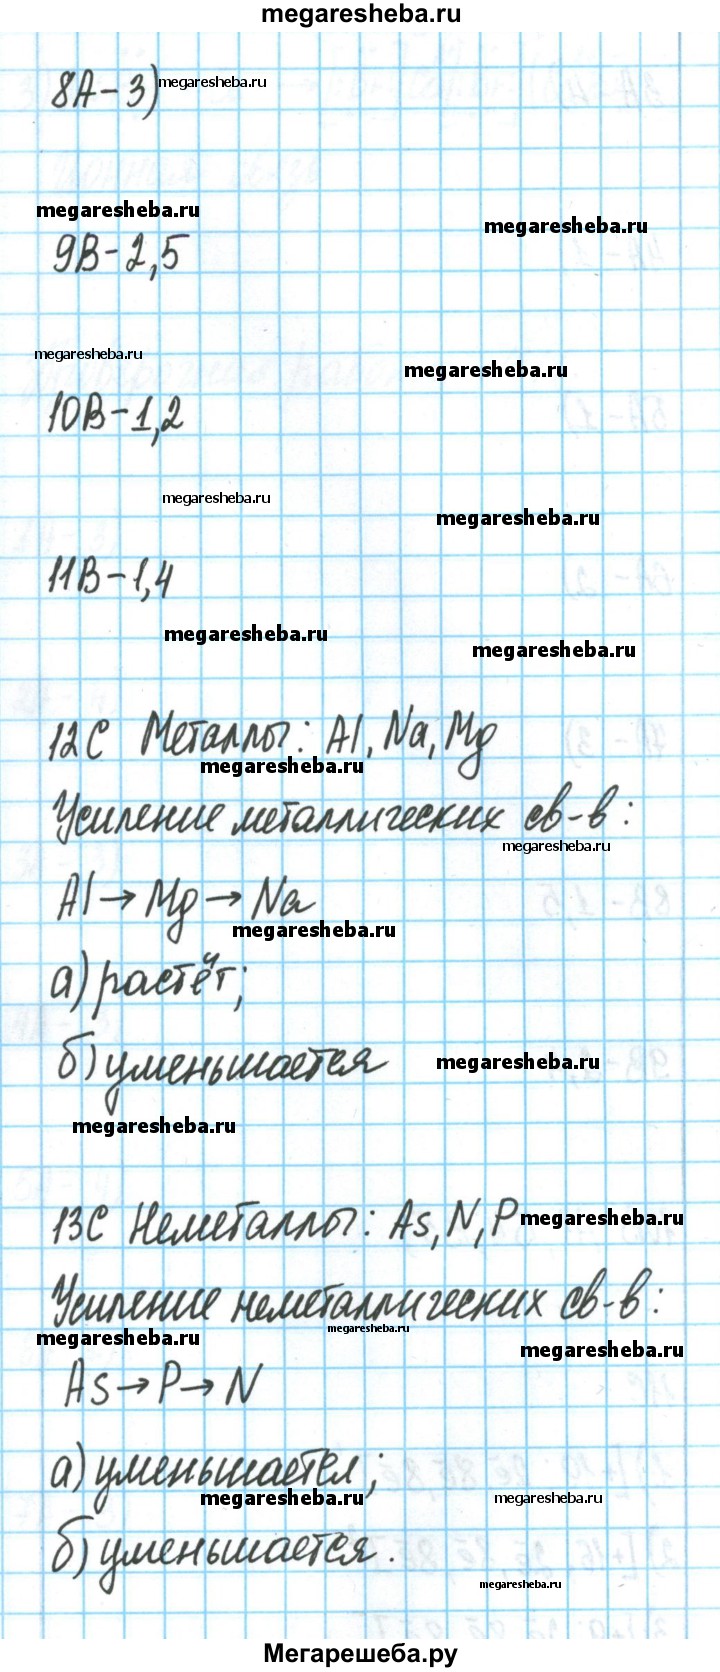 megaresheba.ru
8А-3) megaresheba.ru
megaresheba.ru
megaresheba.ru
9В-2,5
megaresheba.ru
megaresheba.ru
10В-1,2
megaresheba.ru
megaresheba.ru
11В-1,4
megaresheba.ru
megaresheba.ru
12С Металлы: Al, Na, Mg
megaresheba.ru
Усиление металлических св-в:
megaresheba.ru
Al→Mg→Na
megaresheba.ru
а) растёт;
б) уменьшается
megaresheba.ru
megaresheba.ru
13С Неметаллы: As, N, P megaresheba.ru
Усиление неметаллических св-в:
megaresheba.ru
megaresheba.ru
megaresheba.ru
As→P→N
а) уменьшается;
megaresheba.ru
megaresheba.ru
б) уменьшается.
megaresheba.ru
Мегарешеба.ру